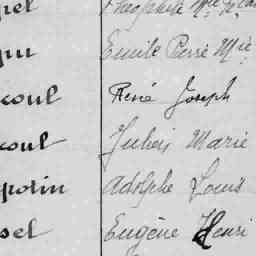 pel Théophile Mie
Emile Pierre Mie
coul René Joseph
coul Julien Marie
potin Adolphe Louis
sel Eugène Henri